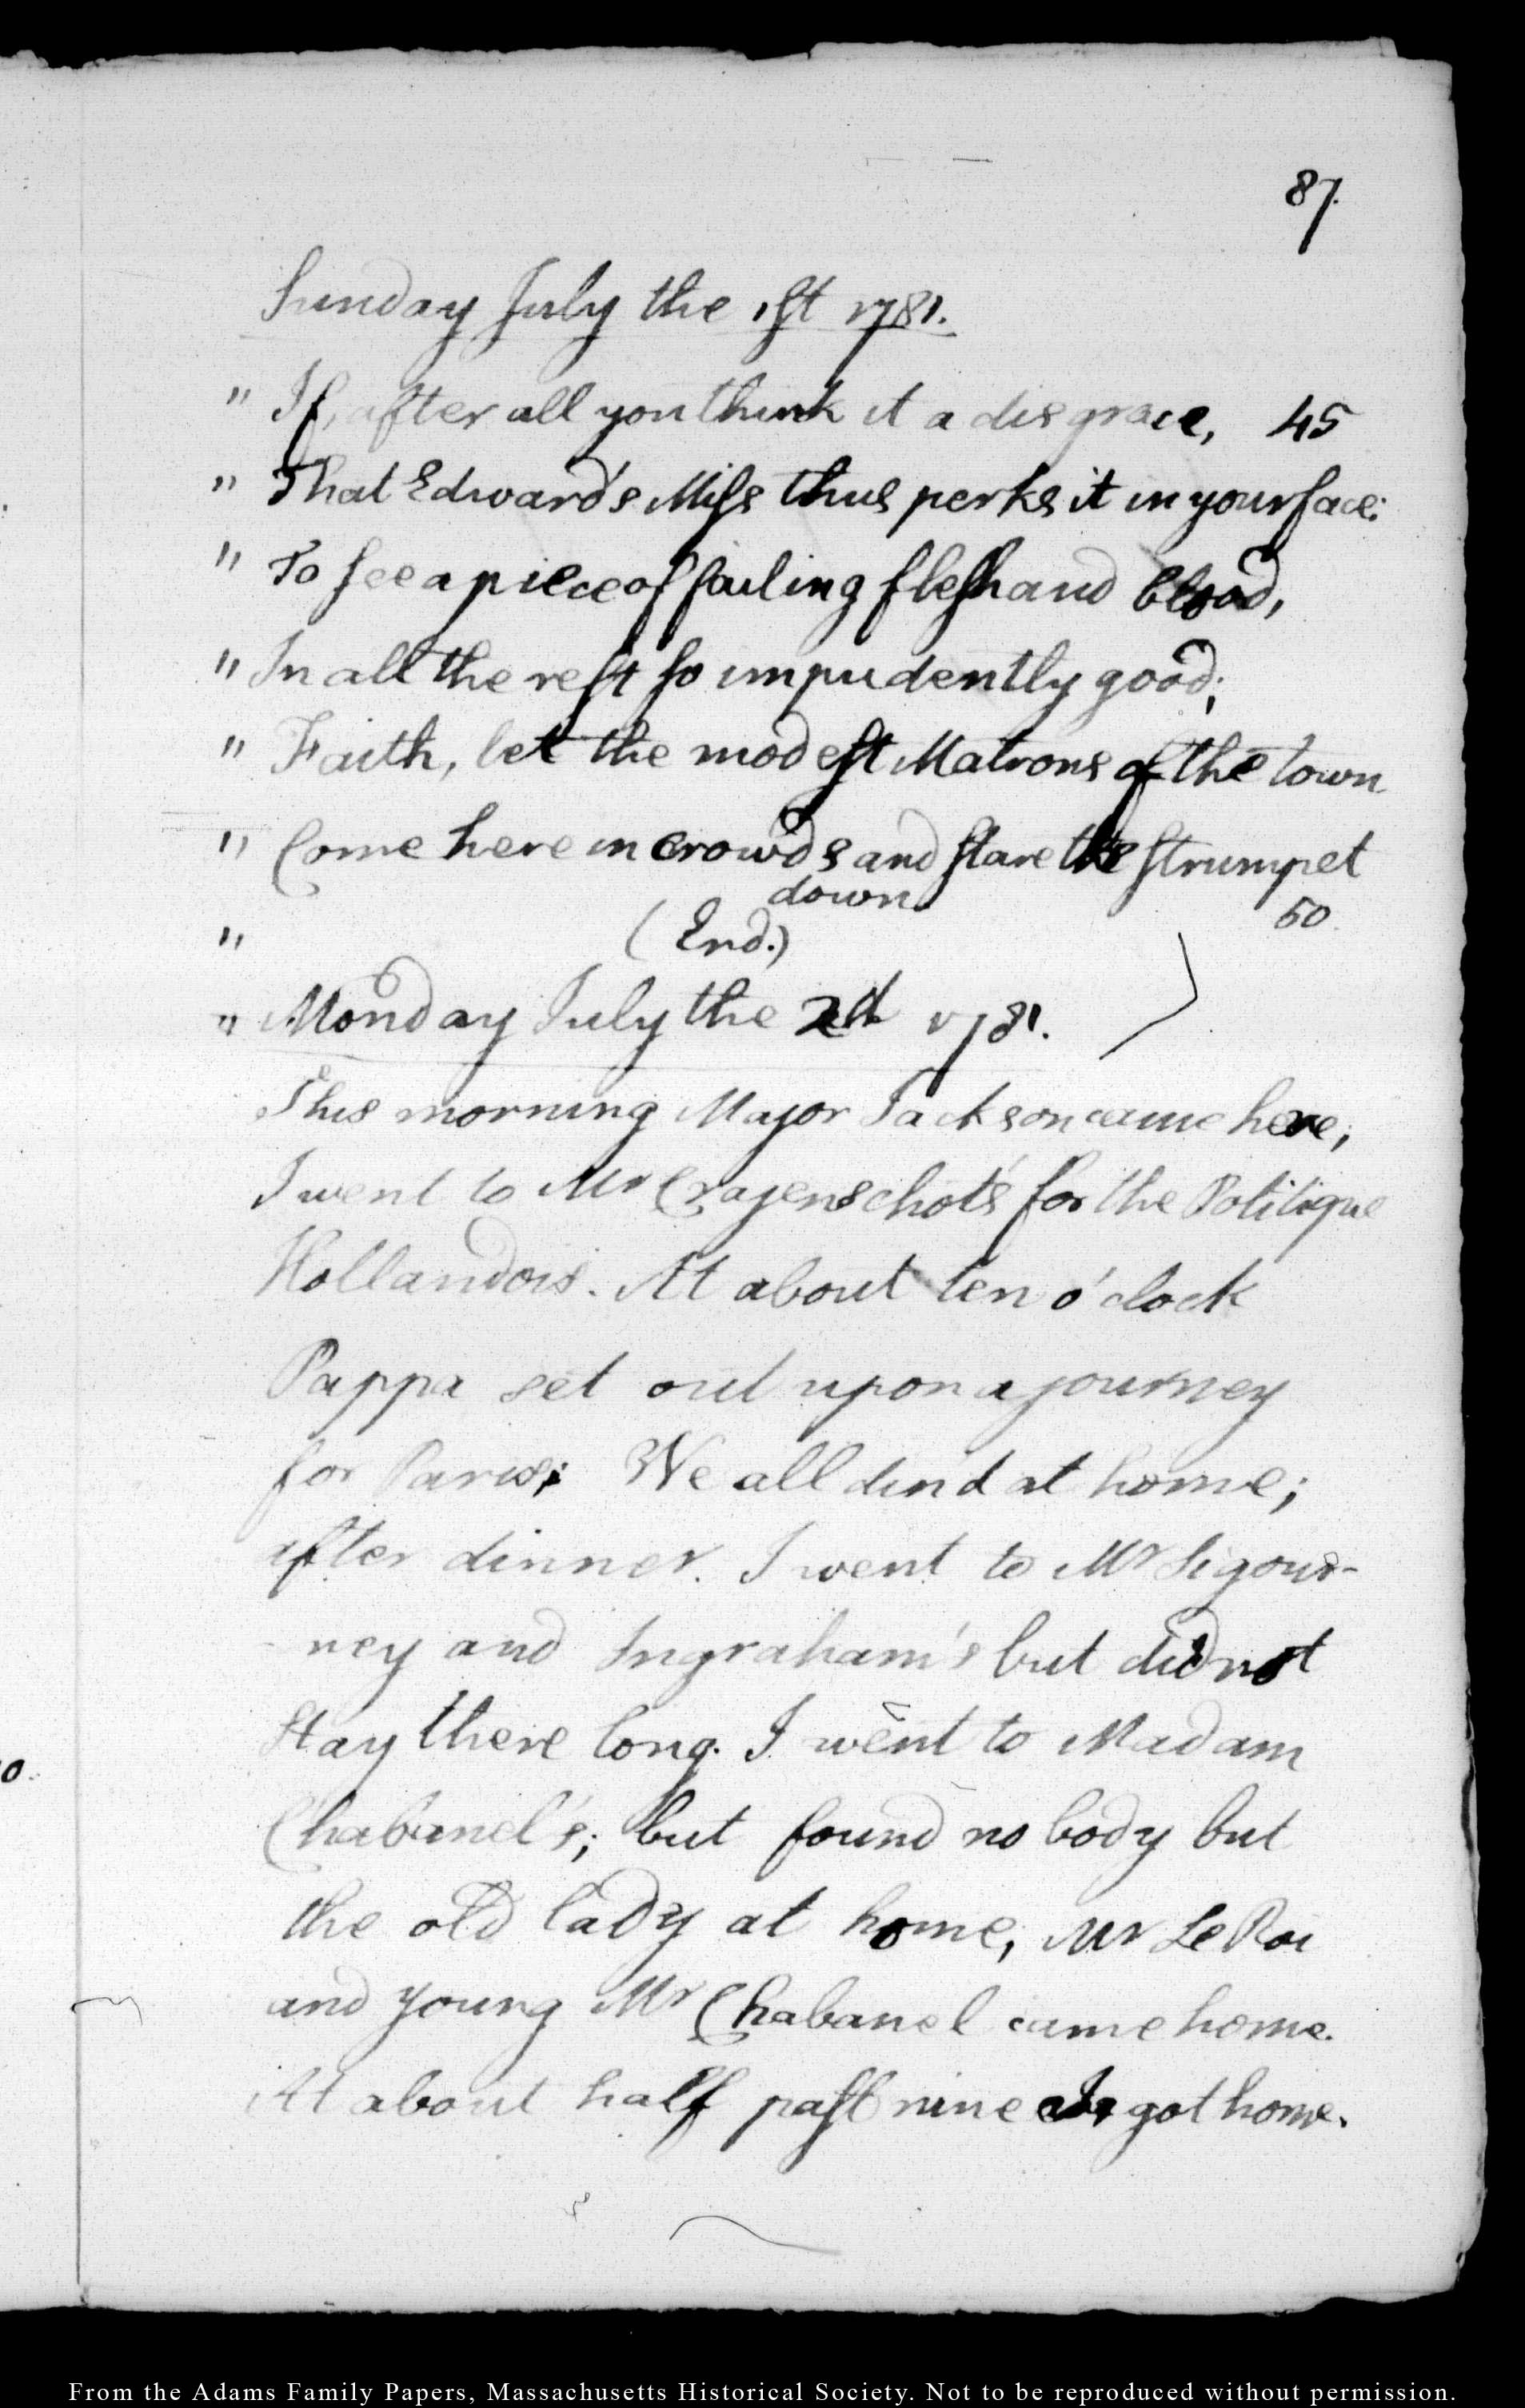 87.
Sunday July the 1st 1781.
" If, after all you think it a disgrace, 45
" That Edward's Miss thus perks it in your face:
" To see a piece of failing flesh and blood,
" In all the rest so impudently good;
" Faith, let the modest Matrons of the town
" Come here in crowds and stare the strumpet
down
50.
" (End.)
" Monday July the 2d 1781.
This morning Major Jackson came here;
I went to Mr Crajenschot's for the Politique
Hollandois. At about ten o'clock
Pappa set out upon a journey
for Paris; We all din'd at home;
after dinner. I went to Mr Sigour-
ney and Ingraham's but did not
stay there long. I went to Madam
Chabanel's; but found no body but
the old lady at home; Mr Le Roi
and young Mr Chabanel came home.
At about half past nine I got home.
0.
From the Adams Family Papers, Massachusetts Historical Society. Not to be reproduced without permission.